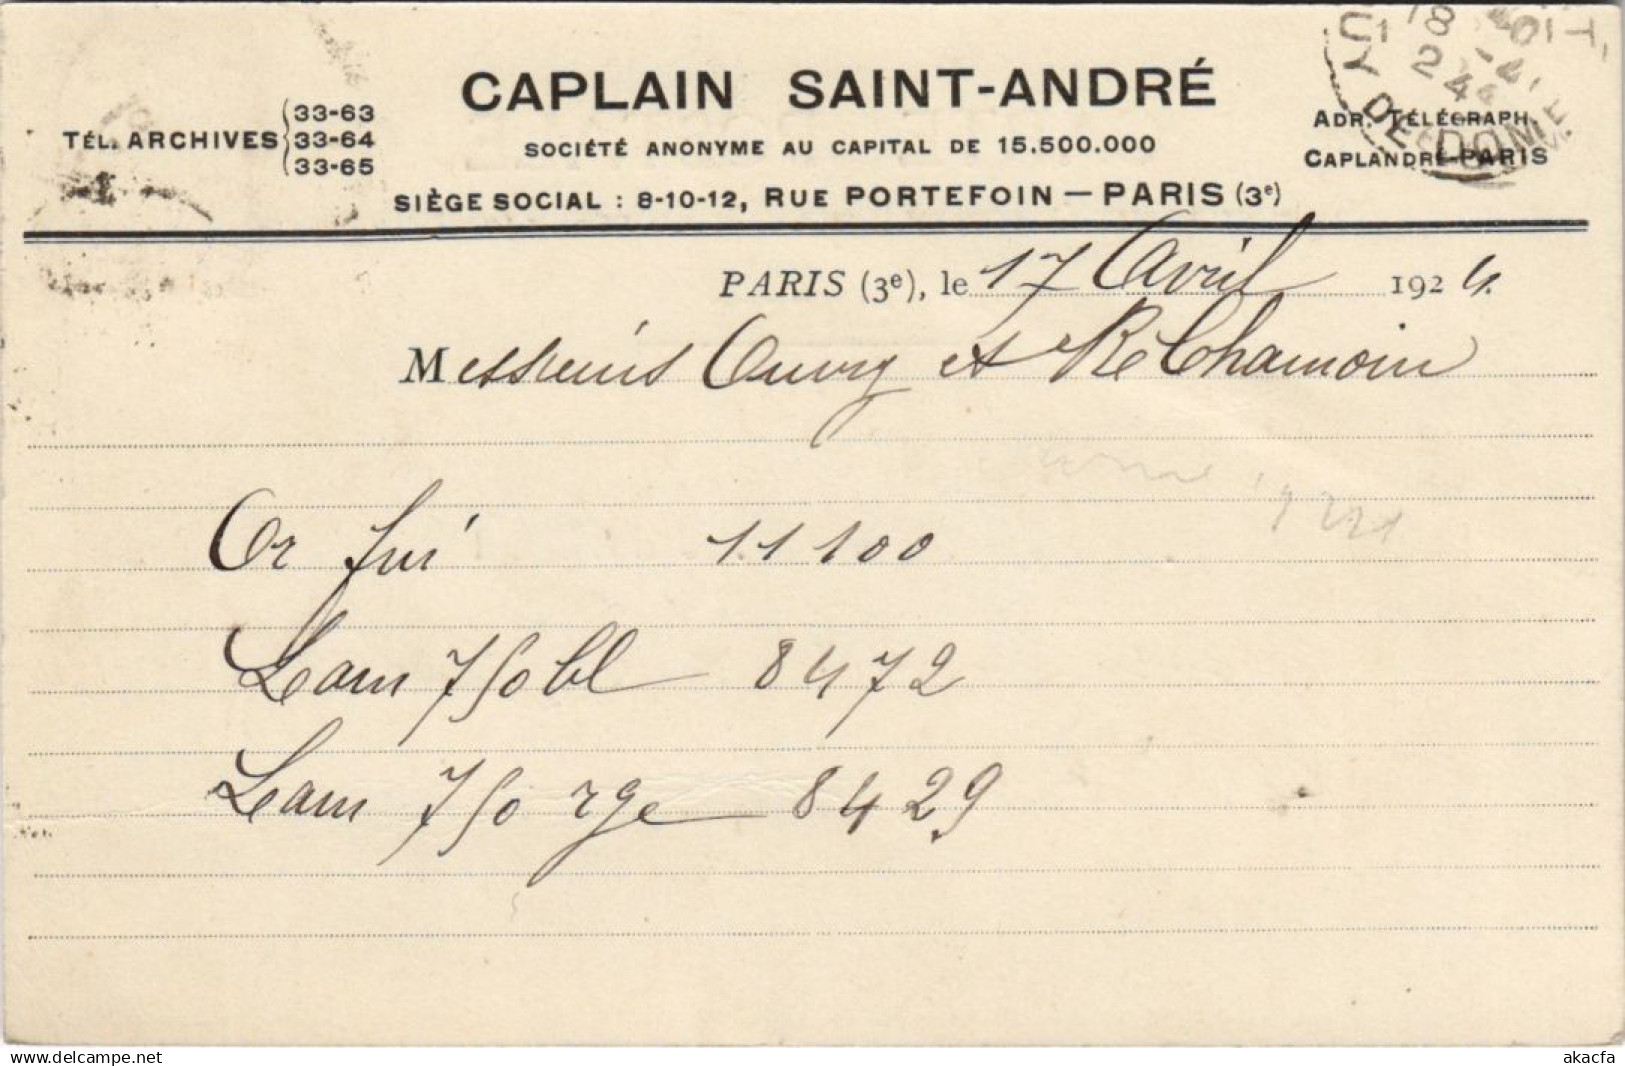 CAPLAIN SAINT-ANDRÉ
TÉL. ARCHIVES
33-63
33-64
33-65
SOCIÉTÉ ANONYME AU CAPITAL DE 15.500.000
ADR. TÉLÉGRAPH.
CAPLANDRÉ-PARIS
SIÈGE SOCIAL : 8-10-12, RUE PORTEFOIN — PARIS (3e)
PUY DE DOME
PARIS (3e), le 17 Avril 1924.
Messieurs Ouvry et Re Chamoin
Or fin 11100
Lam 750 bl 8472
Lam 750 rge 8429
www.delcampe.net
akacfa